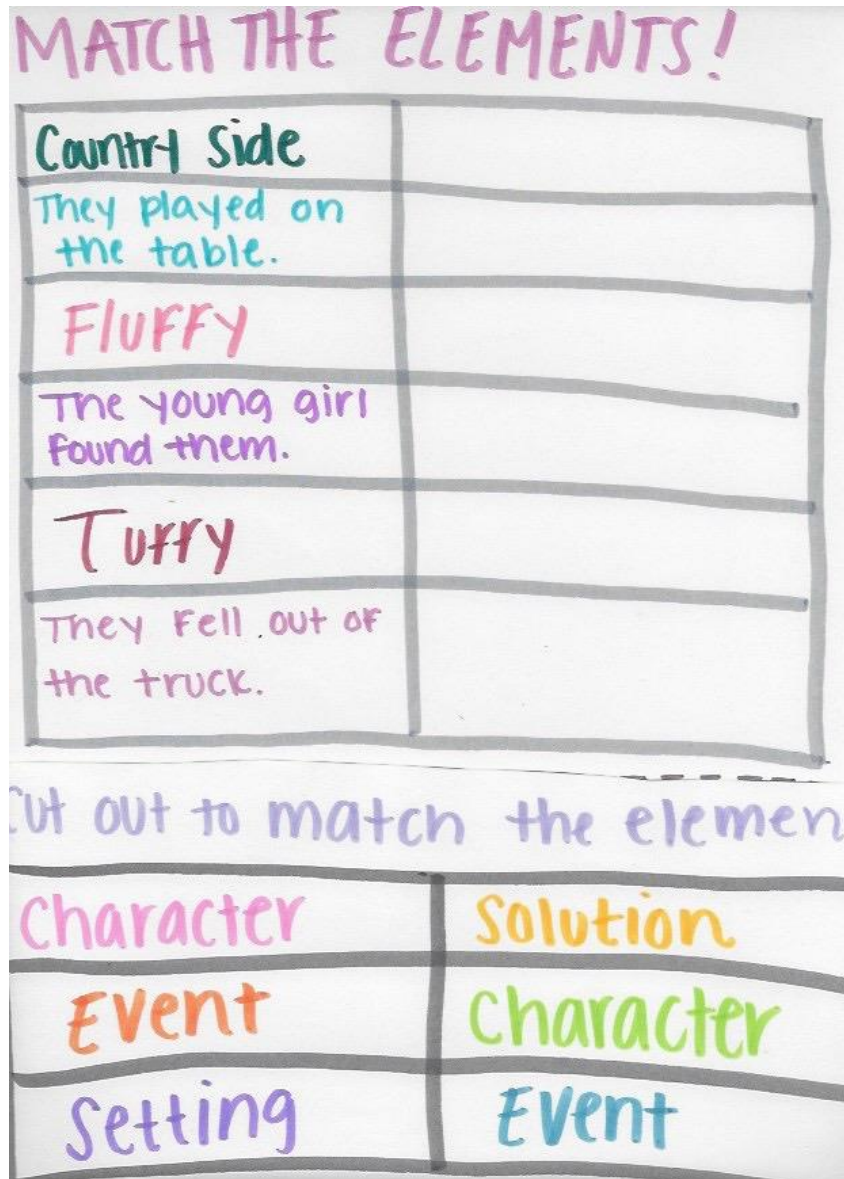 MATCH THE ELEMENTS!
Country Side
They played on
the table.
Fluffy
The young girl
found them.
Tuffy
They fell out of
the truck.
Cut out to match the elemen
Character
Solution
Event
Character
Setting
Event